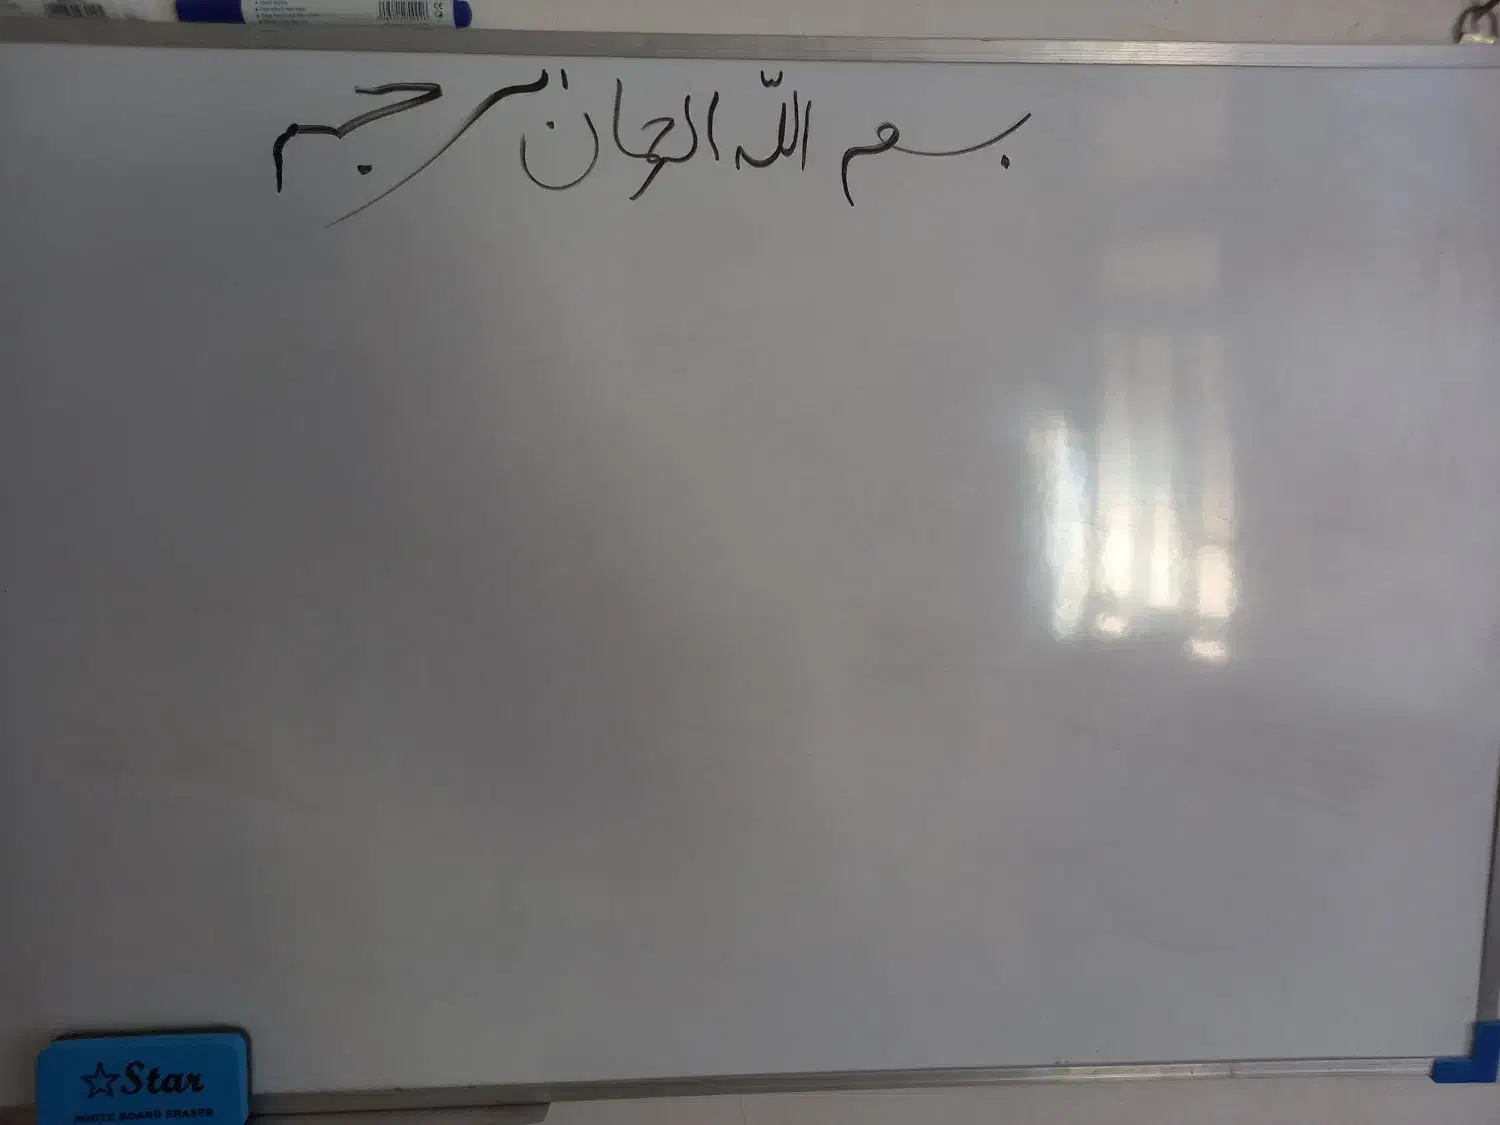 بسم اللّه الرحمان الرحیم
☆Star
WHITE BOARD ERASER